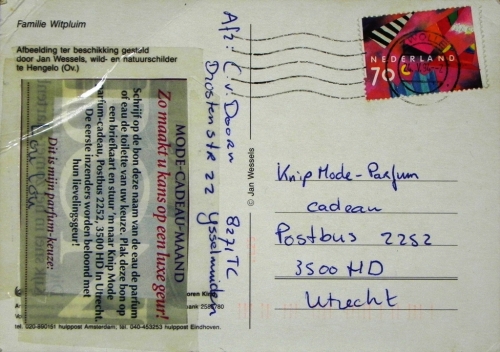 Familie Witpluim
Afbeelding ter beschikking gesteld
door Jan Wessels, wild- en natuurschilder
te Hengelo (Ov.)
MODE-CADEAU-MAAND
Zo maakt u kans op een luxe geur!
Schrijf op de bon deze naam van de eau de parfum
of eau de toilette van uw keuze. Plak deze bon op
een briefkaart en stuur 'm naar Knip Mode
parfum-cadeau, Postbus 2252, 3500 HD In Utrecht.
De eerste inzenders worden beloond met
hun lievelings-geur!
Dit is mijn parfum-keuze:
Afz: C. v. Doorn
Drostenstr 22
8271TC
Ysselmuiden
© Jan Wessels
NEDERLAND
70 c
Knip Mode-Parfum
cadeau
Postbus 2252
3500 HD
Utrecht
tel. 020-890151 hulppost Amsterdam, tel. 040-453253 hulppost Eindhoven.